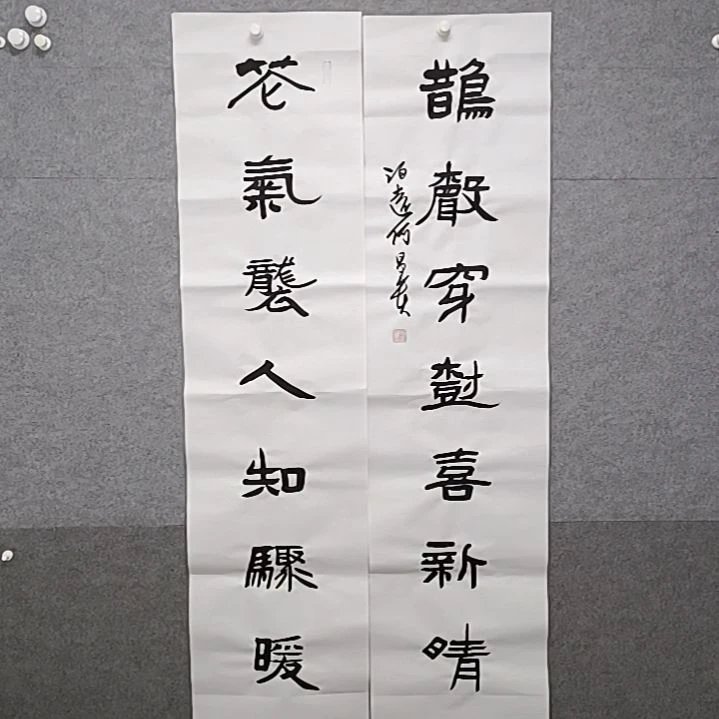 花氣襲人知驟暖
鵲聲穿樹喜新晴
泊遠何昌